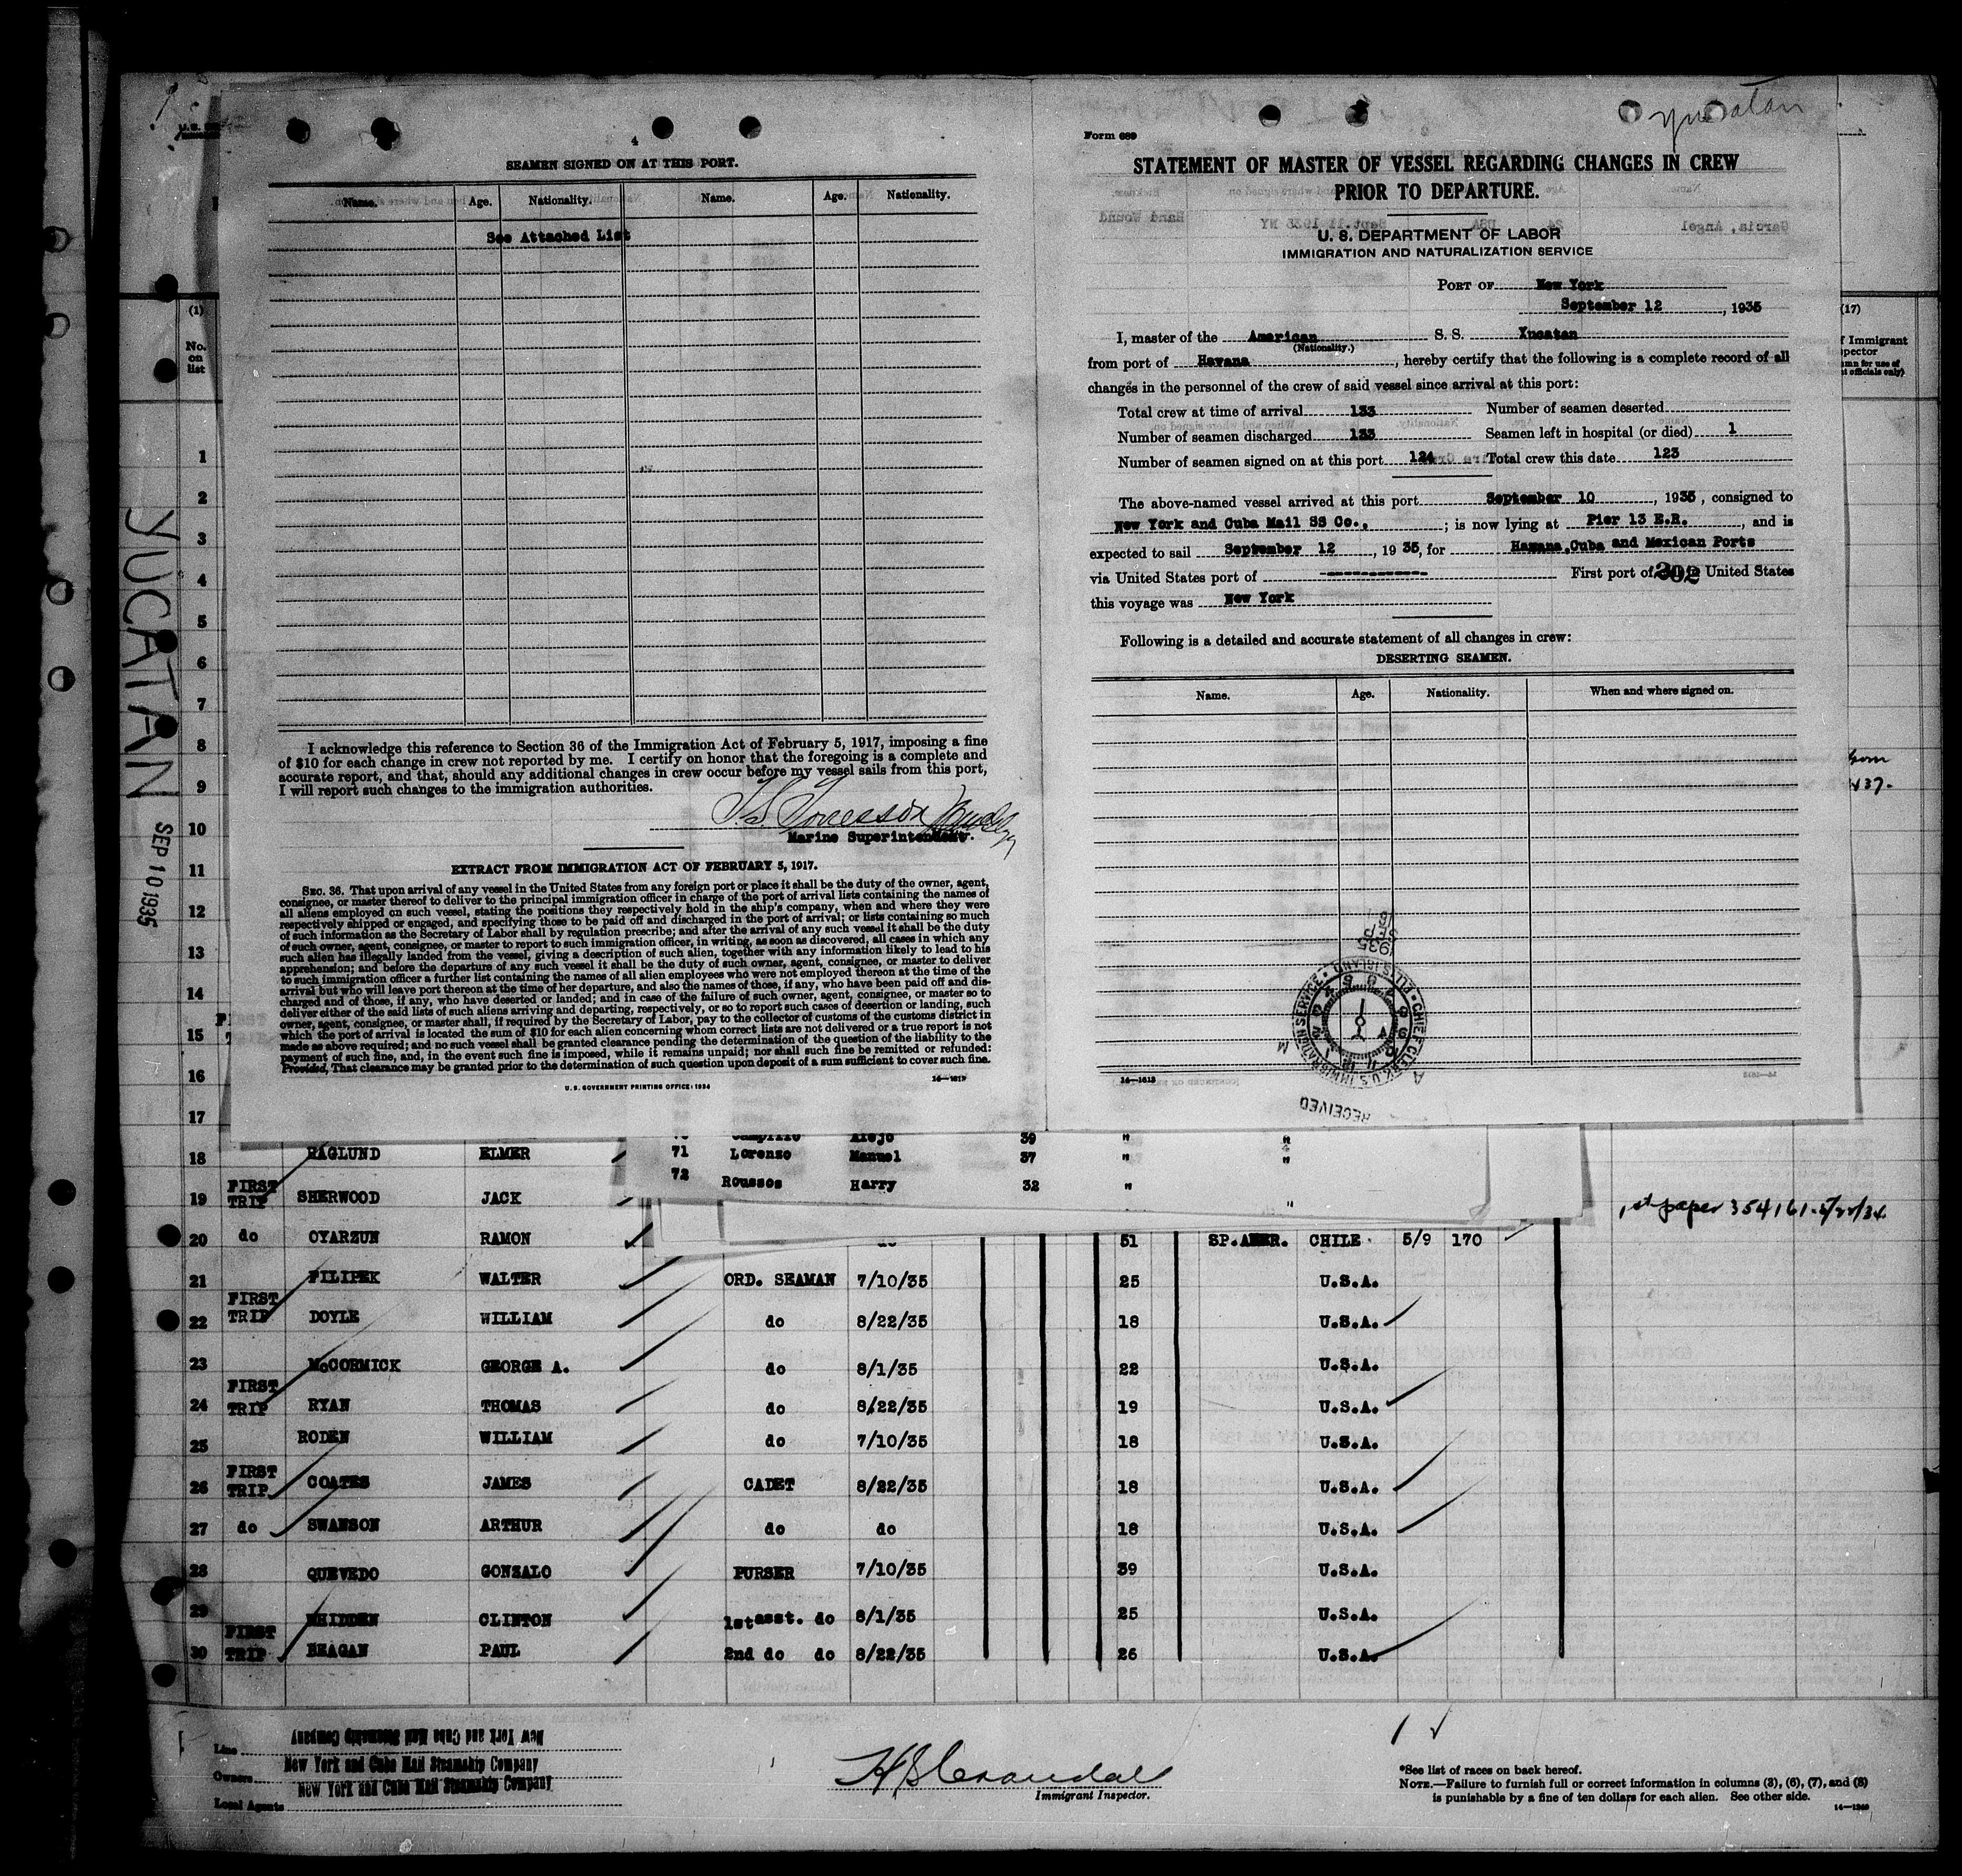 4
SEAMEN SIGNED ON AT THIS PORT.
Name. Age. Nationality. Name. Age. Nationality.
See Attached List
I acknowledge this reference to Section 36 of the Immigration Act of February 5, 1917, imposing a fine
of $10 for each change in crew not reported by me. I certify on honor that the foregoing is a complete and
accurate report, and that, should any additional changes in crew occur before my vessel sails from this port,
I will report such changes to the immigration authorities.
Marine Superintendent.
EXTRACT FROM IMMIGRATION ACT OF FEBRUARY 5, 1917.
SEC. 36. That upon arrival of any vessel in the United States from any foreign port or place it shall be the duty of the owner, agent,
consignee, or master thereof to deliver to the principal immigration officer in charge of the port of arrival lists containing the names of
all aliens employed on such vessel, stating the positions they respectively hold in the ship's company, when and where they were
respectively shipped or engaged, and specifying those to be paid off and discharged in the port of arrival; or lists containing so much
of such information as the Secretary of Labor shall by regulation prescribe; and after the arrival of any such vessel it shall be the duty
of such owner, agent, consignee, or master to report to such immigration officer, in writing, as soon as discovered, all cases in which any
such alien has illegally landed from the vessel, giving a description of such alien, together with any information likely to lead to his
apprehension; and before the departure of any such vessel it shall be the duty of such owner, agent, consignee, or master to deliver
to such immigration officer a further list containing the names of all alien employees who were not employed thereon at the time of the
arrival but who will leave port thereon at the time of her departure, and also the names of those, if any, who have been paid off and dis-
charged and of those, if any, who have deserted or landed; and in case of the failure of such owner, agent, consignee, or master so to
deliver either of the said lists of such aliens arriving and departing, respectively, or so to report such cases of desertion or landing, such
owner, agent, consignee, or master shall, if required by the Secretary of Labor, pay to the collector of customs of the customs district in
which the port of arrival is located the sum of $10 for each alien concerning whom correct lists are not delivered or a true report is not
made as above required; and no such vessel shall be granted clearance pending the determination of the question of the liability to the
payment of such fine, and, in the event such fine is imposed, while it remains unpaid; nor shall such fine be remitted or refunded:
Provided, That clearance may be granted prior to the determination of such question upon deposit of a sum sufficient to cover such fine.
U. S. GOVERNMENT PRINTING OFFICE: 1934 14—1613
Yucatan
Form 689
STATEMENT OF MASTER OF VESSEL REGARDING CHANGES IN CREW
PRIOR TO DEPARTURE.
U. S. DEPARTMENT OF LABOR
IMMIGRATION AND NATURALIZATION SERVICE
PORT OF New York
September 12, 1935
I, master of the American S. S. Yucatan
(Nationality.)
from port of Havana, hereby certify that the following is a complete record of all
changes in the personnel of the crew of said vessel since arrival at this port:
Total crew at time of arrival 133 Number of seamen deserted
Number of seamen discharged 133 Seamen left in hospital (or died) 1
Number of seamen signed on at this port 124 Total crew this date 123
The above-named vessel arrived at this port September 10, 1935, consigned to
New York and Cuba Mail SS Co., ; is now lying at Pier 13 E.R., and is
expected to sail September 12, 1935, for Havana, Cuba and Mexican Ports
via United States port of ------------ First port of 302 United States
this voyage was New York
Following is a detailed and accurate statement of all changes in crew:
DESERTING SEAMEN.
Name. Age. Nationality. When and where signed on.
RECEIVED
CHIEF CLERK U.S. IMMIGRATION SERVICE • ELLIS ISLAND
14—1613
YUCATAN
SEP 10 1935
(1)
No. on list
(17)
1
2
3
4
5
6
7
8
9
10
11
12
13
14
15
16
17
39 " "
71 Lorenzo Manuel 37 " "
72 Roussos Harry 32 " "
18 RAGLUND ELMER
19 FIRST TRIP SHERWOOD JACK 1st paper 354161
20 do OYARZUN RAMON do 51 SP.AMER. CHILE 5/9 170
21 FILIPEK WALTER ORD. SEAMAN 7/10/35 25 U.S.A.
22 FIRST TRIP DOYLE WILLIAM do 8/22/35 18 U.S.A.
23 McCORMICK GEORGE A. do 8/1/35 22 U.S.A.
24 FIRST TRIP RYAN THOMAS do 8/22/35 19 U.S.A.
25 RODEN WILLIAM do 7/10/35 18 U.S.A.
26 FIRST TRIP COATES JAMES CADET 8/22/35 18 U.S.A.
27 do SWANSON ARTHUR do do 18 U.S.A.
28 QUEVEDO GONZALO PURSER 7/10/35 39 U.S.A.
29 WHIDDEN CLINTON 1st asst. do 8/1/35 25 U.S.A.
30 FIRST TRIP REAGAN PAUL 2nd do do 8/22/35 26 U.S.A.
Line New York and Cuba Mail Steamship Company
Owners New York and Cuba Mail Steamship Company
Local Agents New York and Cuba Mail Steamship Company
Immigrant Inspector.
*See list of races on back hereof.
NOTE.—Failure to furnish full or correct information in columns (3), (6), (7), and (8)
is punishable by a fine of ten dollars for each alien. See other side.
14—1240